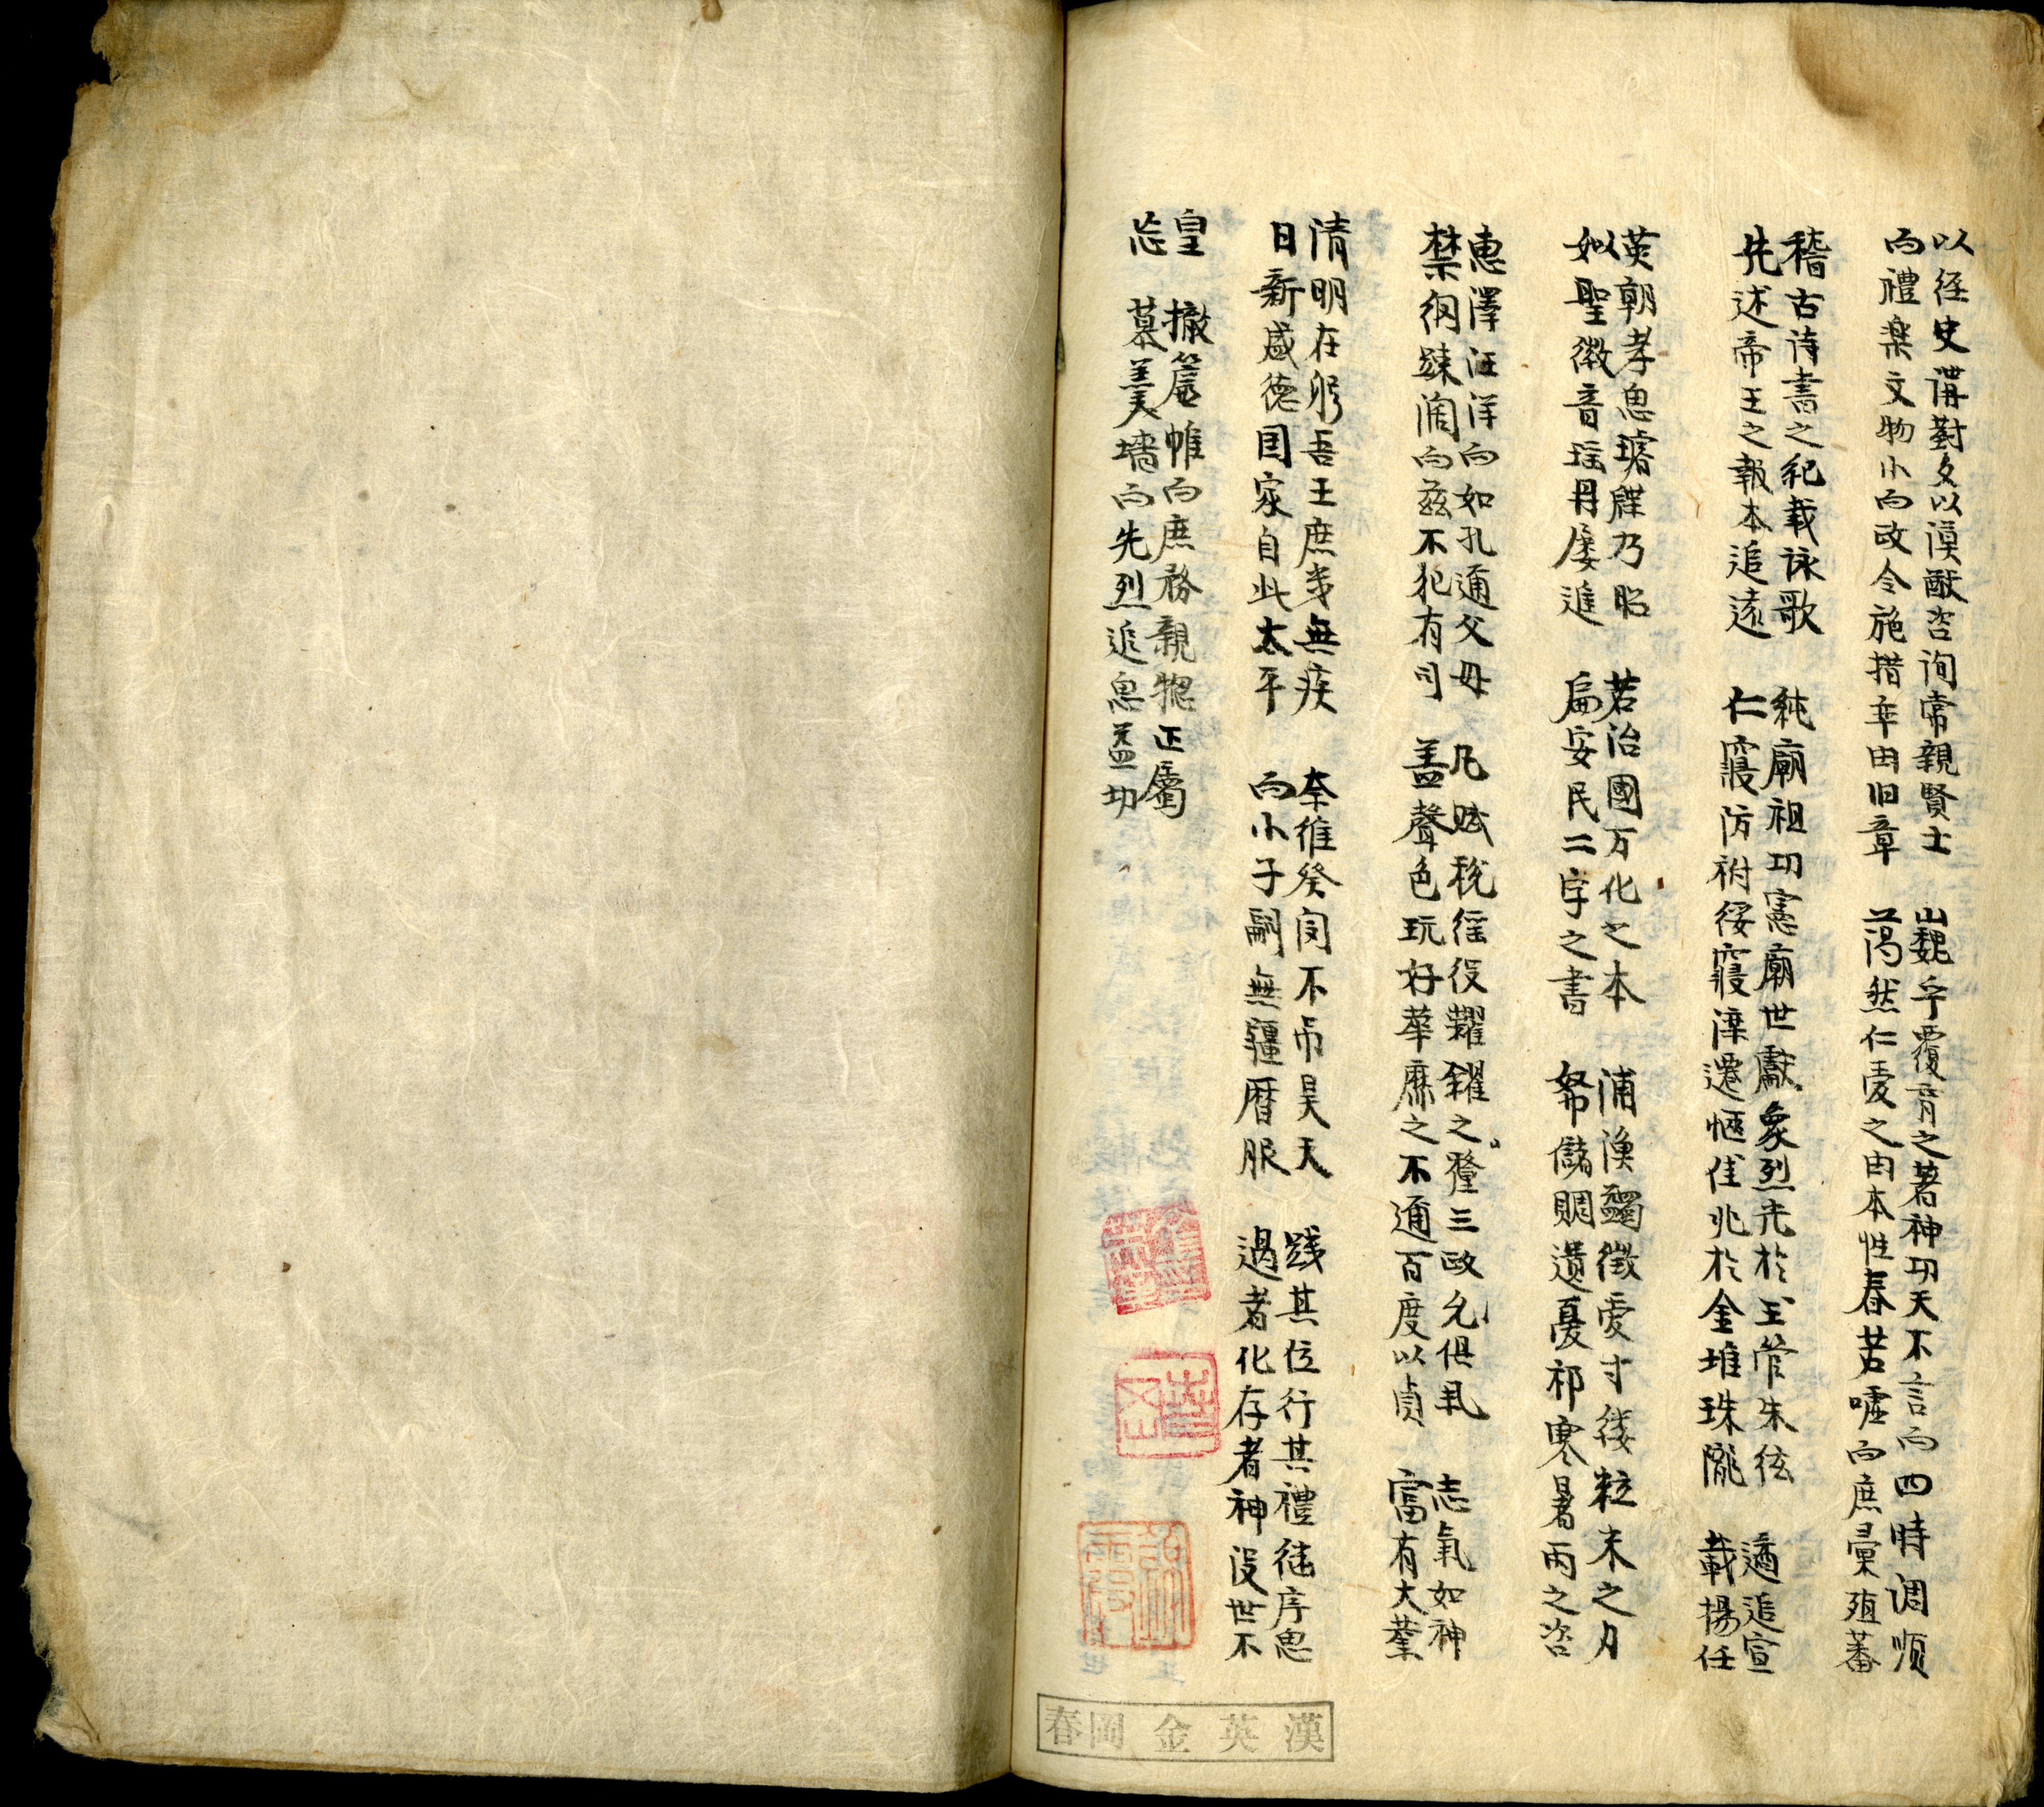 以経史講對文以謨猷咨詢常親賢士　巍乎覆育之著神功天不言而四時调順
而禮楽文物小而政令施措率由旧章　藹然仁憂之由本性春若噓而庶彙殖蕃
稽古诗書之紀載詠歌　純廟祖功憲廟世獻象烈光於玉管朱絃　遹追宣
先述帝王之報本追遠　仁寢防祔綏寢溁遷恆佳兆於金堆珠隴　載揚任
英朝孝思璿牒乃昭　若治國万化之本　浦漁蠲徵虔寸絲粒米之月
如以聖徽音瑶冊屡進　扁安民二字之書　帑儲賙遺憂祁寒暑雨之咨
惠澤汪洋而如孔邇父母　凡賦稅徭役糶糴之釐三政允俱乩　志氣如神
禁網踈濶而茲不犯有司　盖聲色玩好華靡之不通百度以貞　富有大業
清明在躬吾王庶幾無疾　奈維癸閔不吊昊天　践其位行其禮継序思
日新盛德国家自此太平　而小子嗣無疆曆服　過者化存者神没世不
皇　撤簾帷而庶務親揔正屬
忘　慕羹墻而先烈追思益切
漢英金岡春